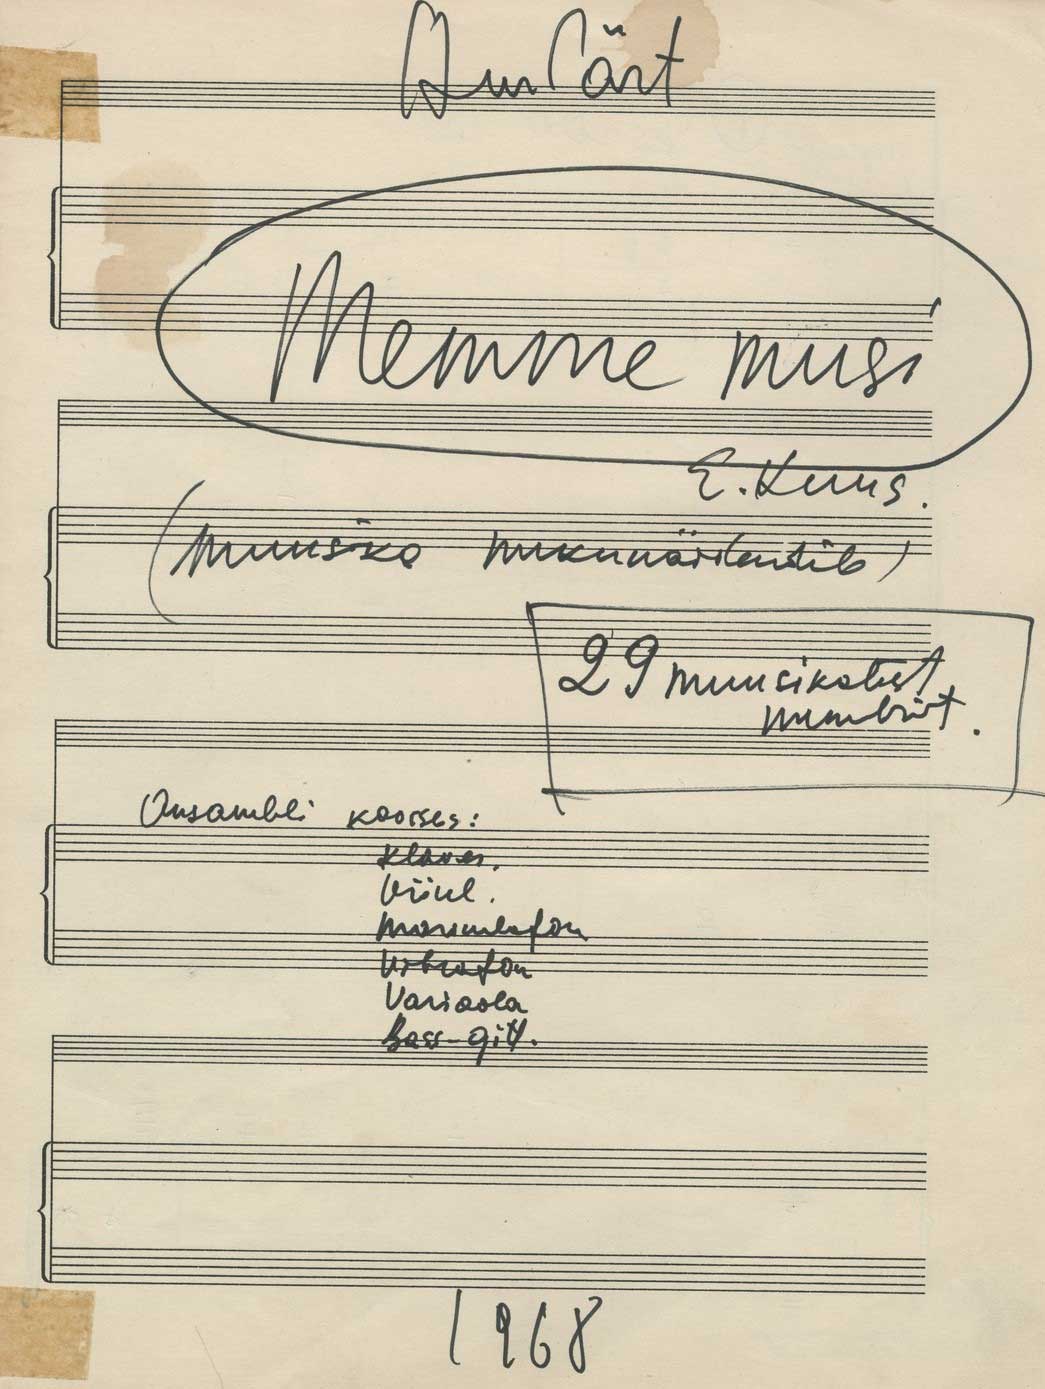 Arvo Pärt
Memme musi
E. Kuus.
(Muusika nukunäidendile)
29 muusikalist
numbrit.
Ansambli koosseis:
Klaver.
Viiul.
Marimbafon
Vibrafon
Variola
Bass-git.
1968